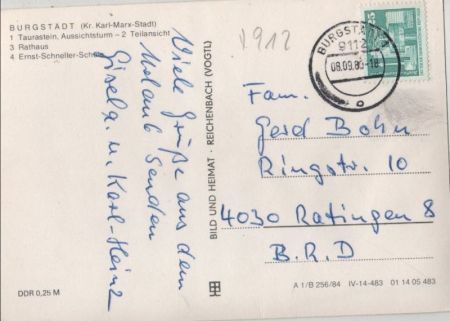 BURGSTÄDT (Kr. Karl-Marx-Stadt)
1 Taurastein, Aussichtsturm – 2 Teilansicht
3 Rathaus
4 Ernst-Schneller-Schule
Viele Grüße aus dem
Urlaub senden
Gisela u. Karl-Heinz
DDR 0,25 M
BILD UND HEIMAT · REICHENBACH (VOGTL)
BURGSTÄDT 1
9112
Fam.
Gerd Bohn
Ringstr. 10
4030 Ratingen 8
B.R.D
A 1/B 256/84 IV-14-483 01 14 05 483